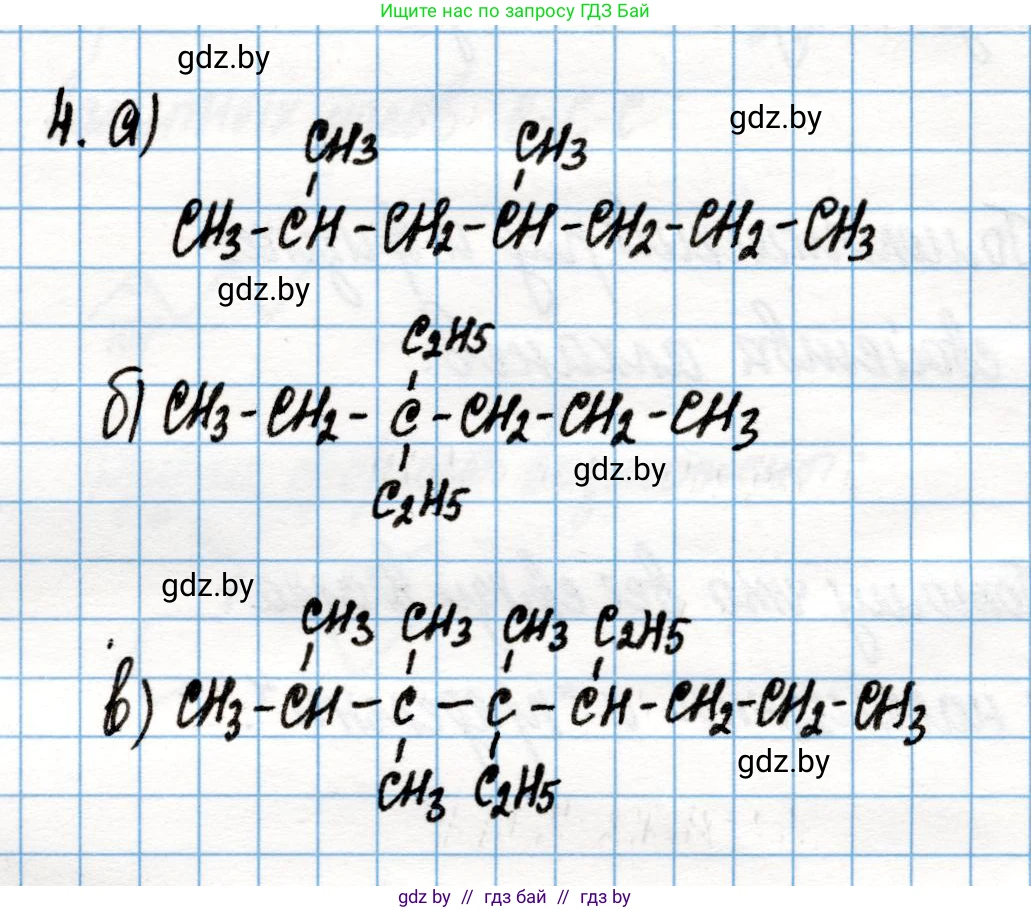 Ищите нас по запросу ГДЗ Бай
gdz.by
4. а)
gdz.by
CH3 CH3
CH3-CH-CH2-CH-CH2-CH2-CH3
gdz.by
C2H5
б) CH3-CH2-C-CH2-CH2-CH3
gdz.by
C2H5
gdz.by
CH3 CH3 CH3 C2H5
в) CH3-CH-C-C-CH-CH2-CH2-CH3
gdz.by
CH3 C2H5
gdz by // гдз бай // гдз by